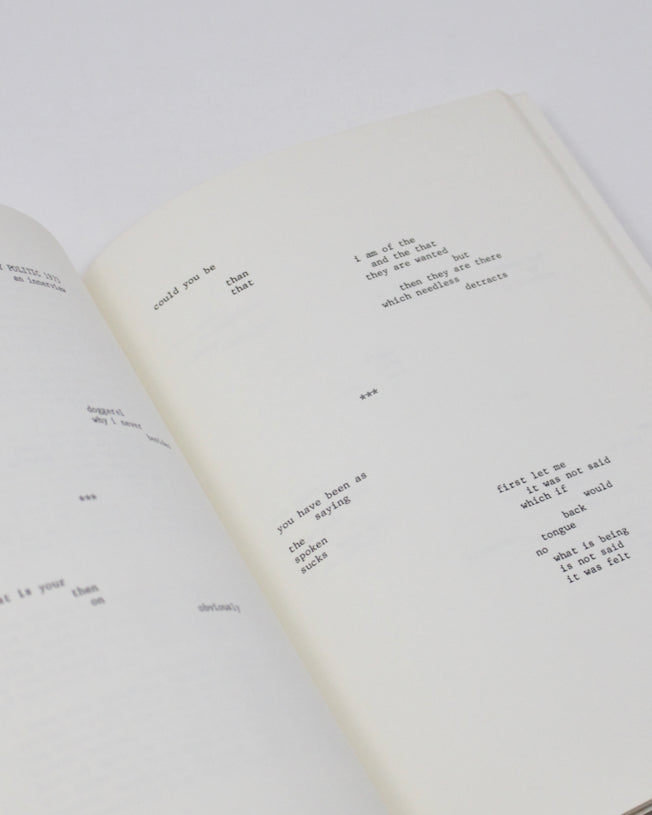 POLITIC
an innerview
doggerel
why i never
besides
***
is your
then
on
obviously
could you be
than
that
i am of the
and the that
they are wanted
but
then they are there
which needless
detracts
***
you have been as
saying
the
spoken
sucks
first let me
it was not said
which if
would
back
tongue
no
what is being
is not said
it was felt